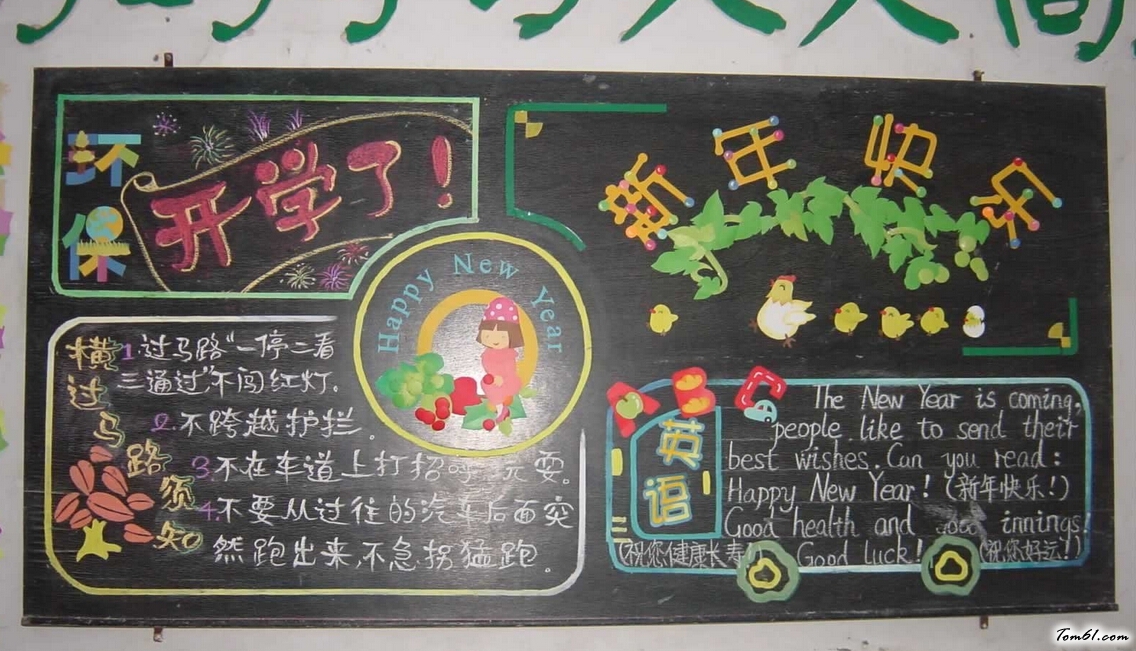 环保
开学了!
新年快乐
Happy New Year
横过马路须知
1.过马路“一停二看
三通过”不闯红灯。
2.不跨越护拦。
3.不在车道上打招呼、玩耍。
4.不要从过往的汽车后面突
然跑出来,不急拐猛跑。
英语
The New Year is coming,
people like to send their
best wishes. Can you read:
Happy New Year! (新年快乐!)
Good health and innings!
(祝您健康长寿!) Good luck! (祝您好运!)
Tom61.com